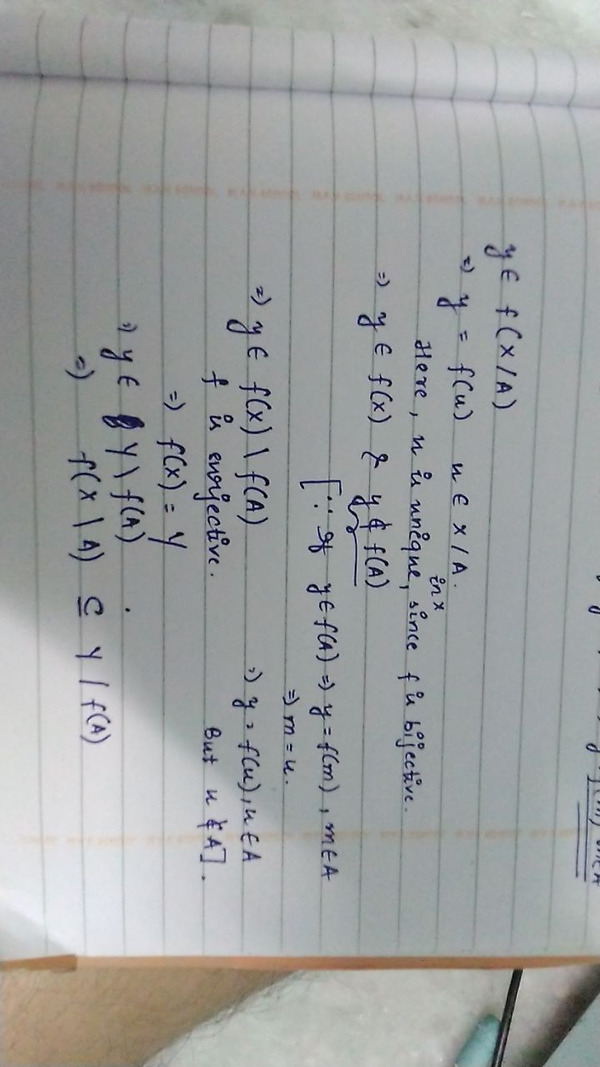 y ∈ f(X/A)
⇒ y = f(u) u ∈ X/A.
Here, u is unique, in X since f is bijective.
⇒ y ∈ f(X) & y ∉ f(A)
[∵ If y ∈ f(A) ⇒ y = f(m), m ∈ A
⇒ m = u.
⇒ y = f(u), u ∈ A
But u ∉ A].
⇒ y ∈ f(X) \ f(A)
f is surjective.
⇒ f(X) = Y
⇒ y ∈ Y \ f(A)
⇒ f(X \ A) ⊆ Y / f(A)